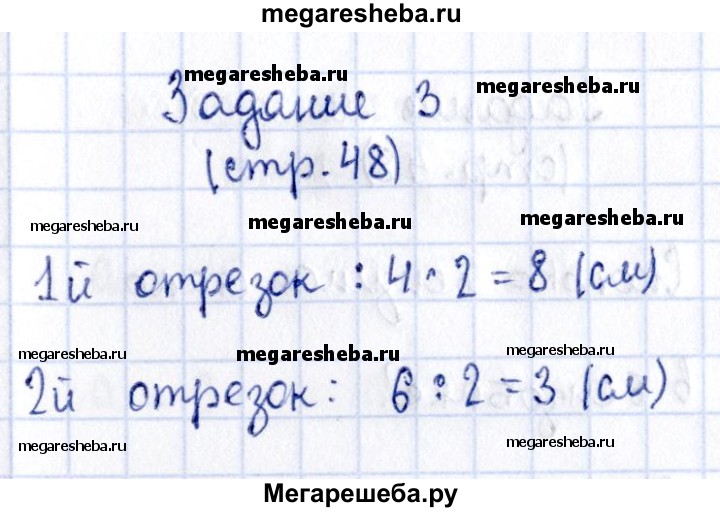 megaresheba.ru
megaresheba.ru
megaresheba.ru
Задание 3
(стр. 48)
megaresheba.ru
megaresheba.ru
megaresheba.ru
1й отрезок : 4 · 2 = 8 (см)
megaresheba.ru
megaresheba.ru
megaresheba.ru
2й отрезок : 6 : 2 = 3 (см)
megaresheba.ru
megaresheba.ru
Мегарешеба.ру